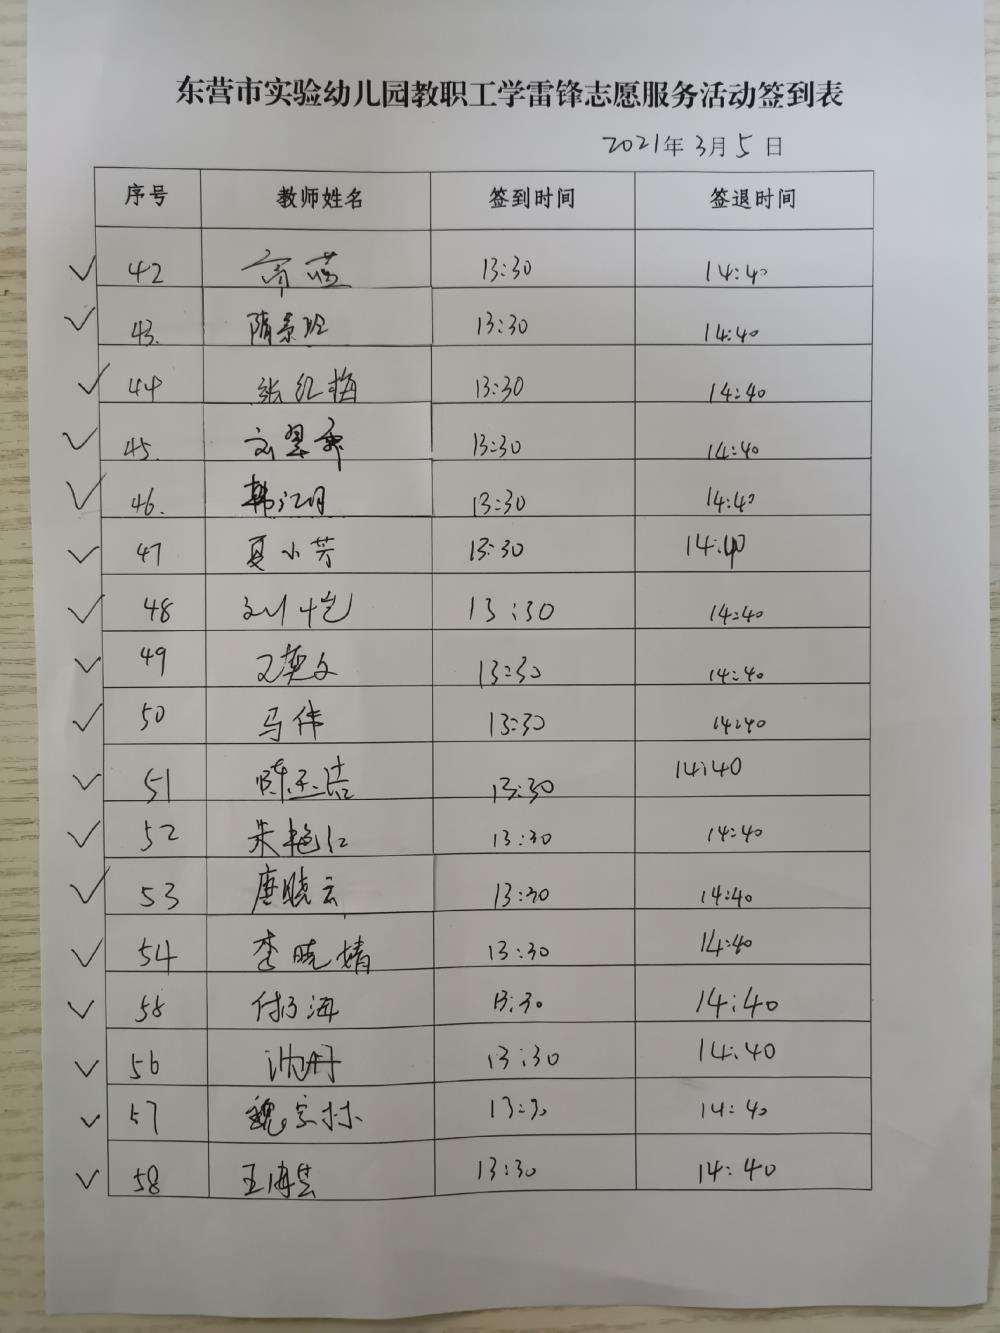 东营市实验幼儿园教职工学雷锋志愿服务活动签到表
2021年3月5日
序号 教师姓名 签到时间 签退时间
42 齐蓝 13:30 14:40
43. 隋景玲 13:30 14:40
44 张红梅 13:30 14:40
45. 刘翠 13:30 14:40
46. 韩江月 13:30 14:40
47 夏小芳 13:30 14:40
48 刘恺 13:30 14:40
49 英文 13:30 14:40
50 马伟 13:30 14:40
51 陈玉洁 13:30 14:40
52 朱艳红 13:30 14:40
53 唐晓云 13:30 14:40
54 李晓婧 13:30 14:40
55 付海 13:30 14:40
56 沈丹 13:30 14:40
57 魏宗林 13:30 14:40
58 王海芸 13:30 14:40